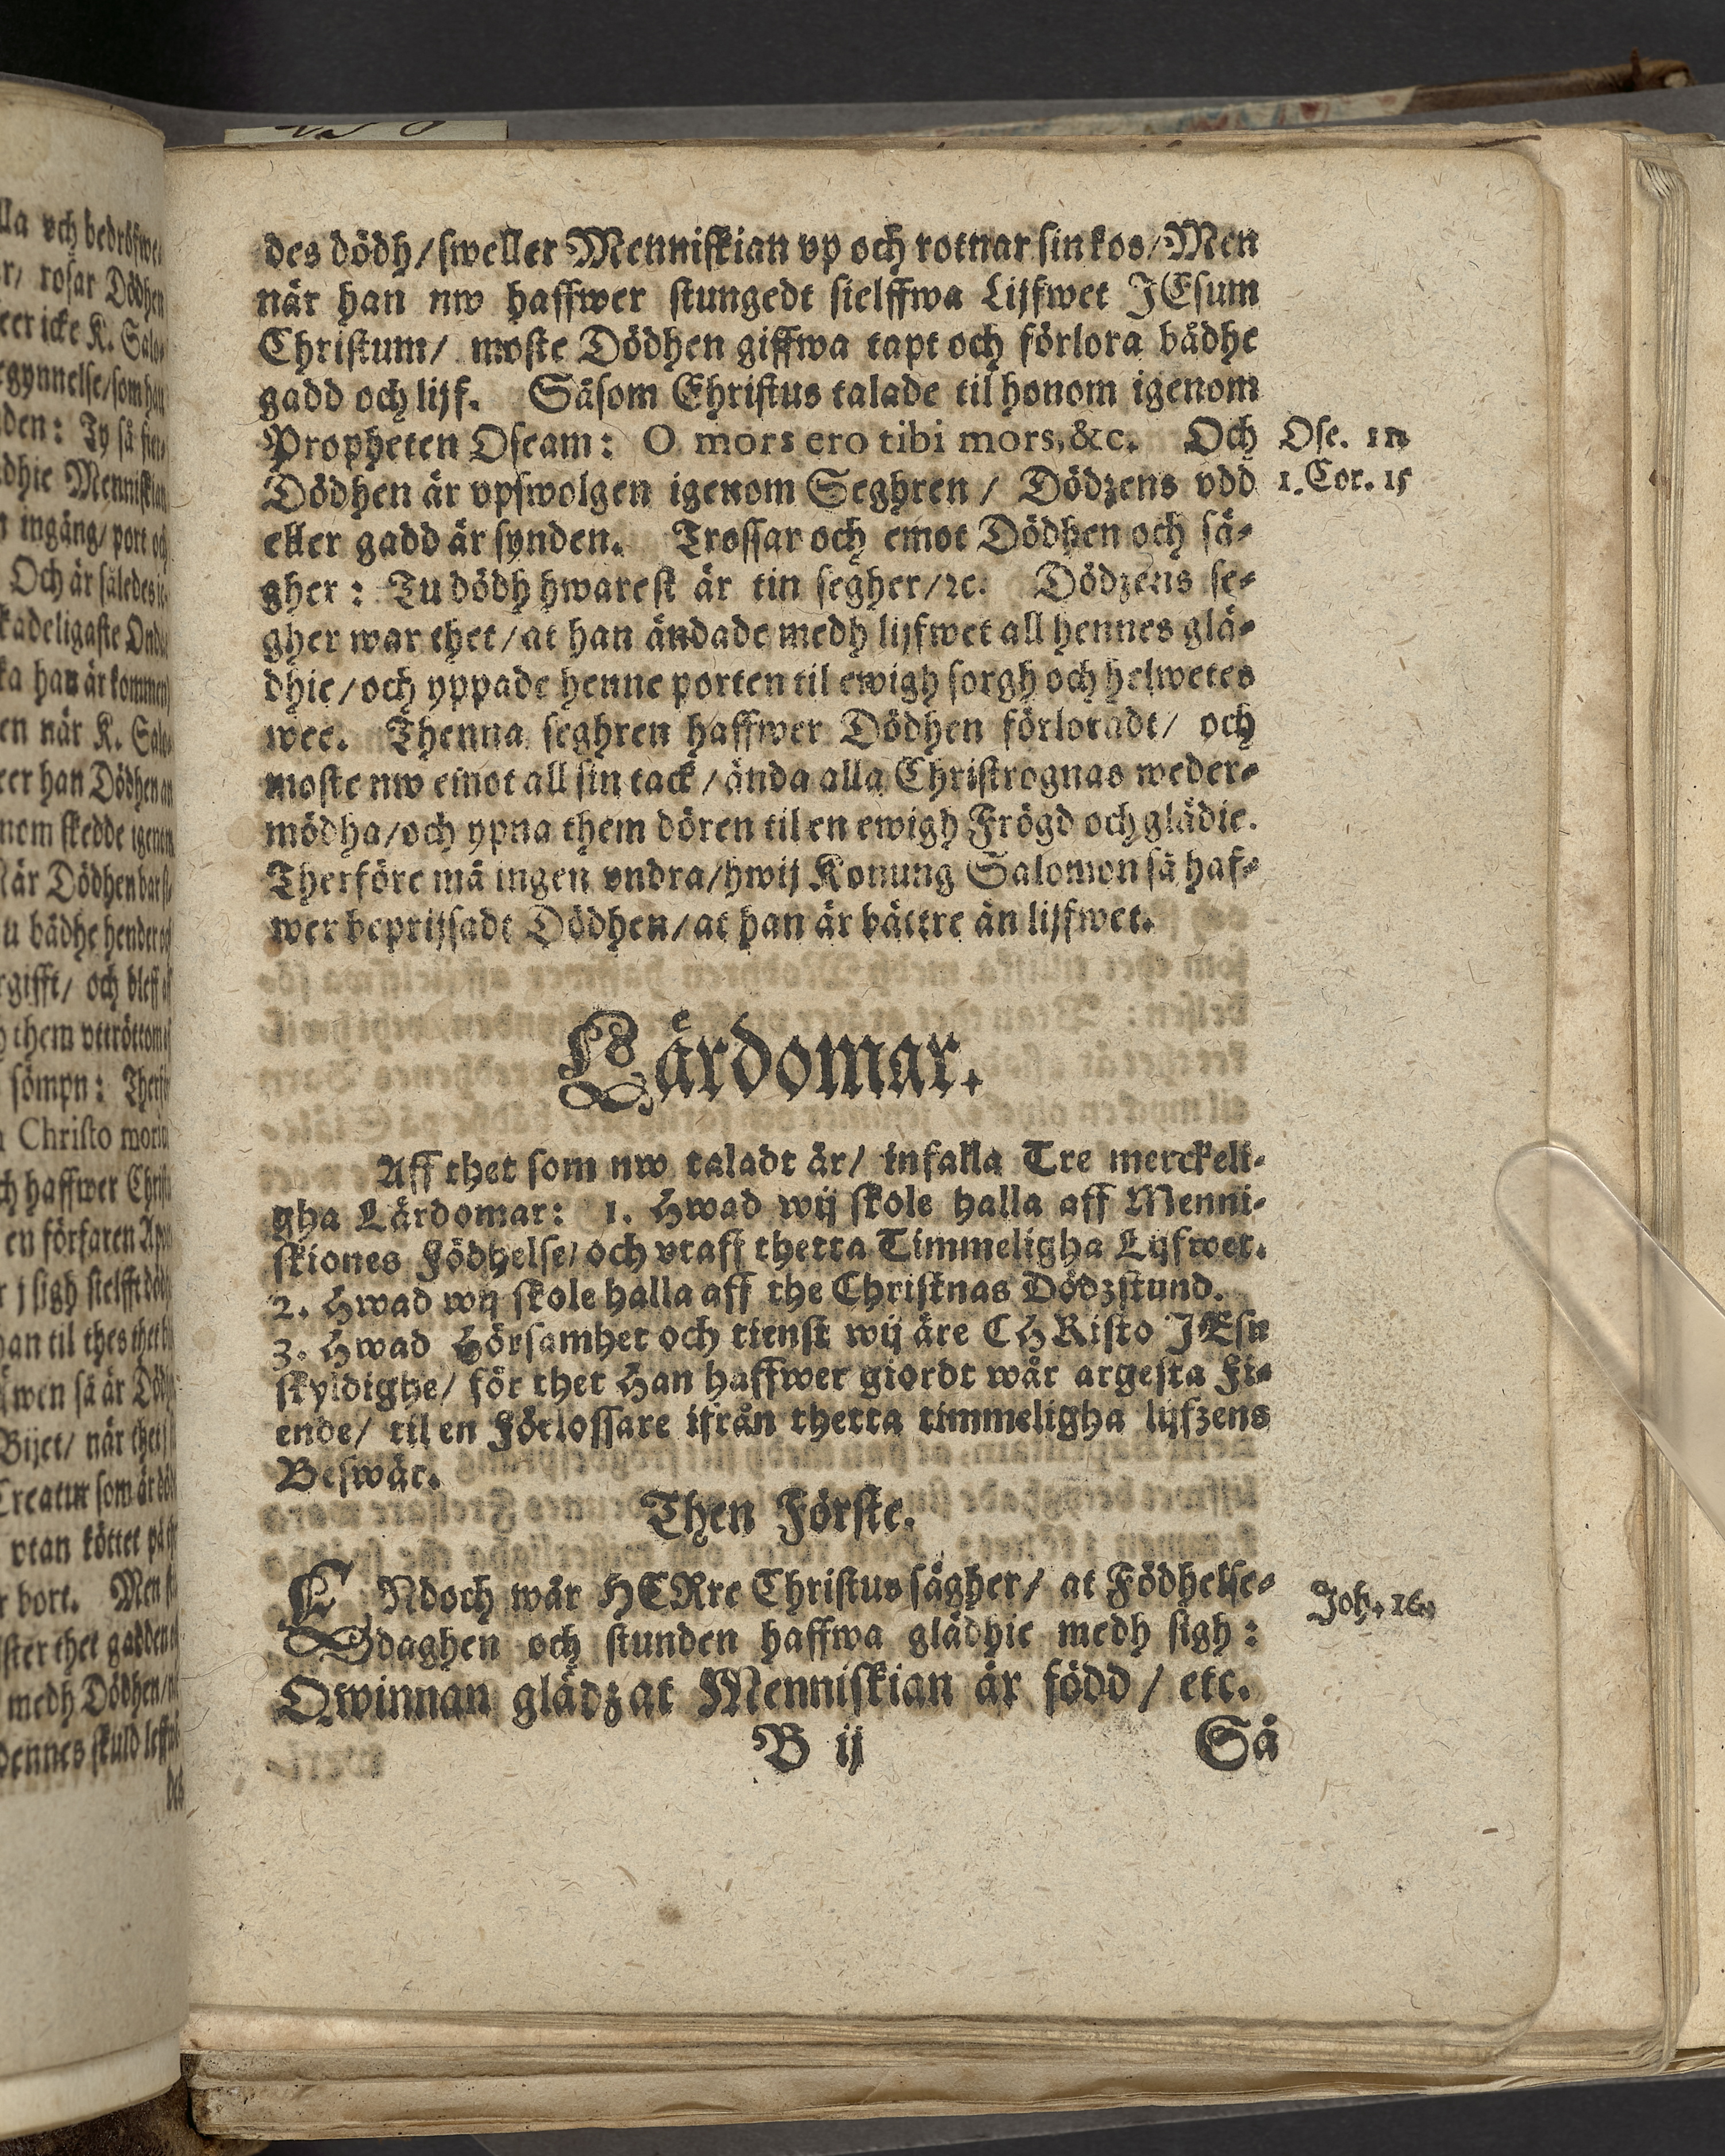 des dödh/sweller Menniskian vp och rotnar sin kos/Men
när han nw haffwer stungedt sielffwa Lijfwet JEsum
Christum/ moste Dödhen giffwa tapt och förlora bådhe
gadd och lijf. Såsom Christus talade til honom igenom
Propheten Oseam: O mors ero tibi mors, &c. Och
Ose. 13
Dödhen är vpswolgen igenom Seghren / Dödzens vdd
1. Cor. 15
eller gadd är synden. Trossar och emot Dödhen och sä-
gher: Tu dödh hwarest är tin segher/ꝛc. Dödzens se-
gher war thet/at han ändade medh lijfwet all hennes glä-
dhie/och yppade henne porten til ewigh sorgh och helwetes
wee. Thenna seghren haffwer Dödhen förloradt/ och
moste nw emot all sin tack/ända alla Christrognas weder-
mödha/och ypna them dören til en ewigh Frögd och glädie.
Therföre må ingen vndra/hwij Konung Salomon så haf-
wer beprijsadt Dödhen/at han är bättre än lijfwet.
Lärdomar.
Aff thet som nw taladt är/ infalla Tre merckeli-
gha Lärdomar: 1. Hwad wij skole halla aff Menni-
skiones Födhelse/och vtaff thetta Timmeligha Lijfwet.
2. Hwad wij skole halla aff the Christnas Dödzstund.
3. Hwad Hörsamhet och tienst wij äre CHRisto JEsu
skyldighe/ för thet Han haffwer giordt wår argesta Fi-
ende/ til en Förlossare ifrån thetta timmeligha lijfzens
Beswär.
Then Förste.
ENdoch wår HERre Christus sägher/ at Födhelse-
Joh. 16.
daghen och stunden haffwa glädhie medh sigh:
Qwinnan glädz at Menniskian är född / etc.
B ij Så